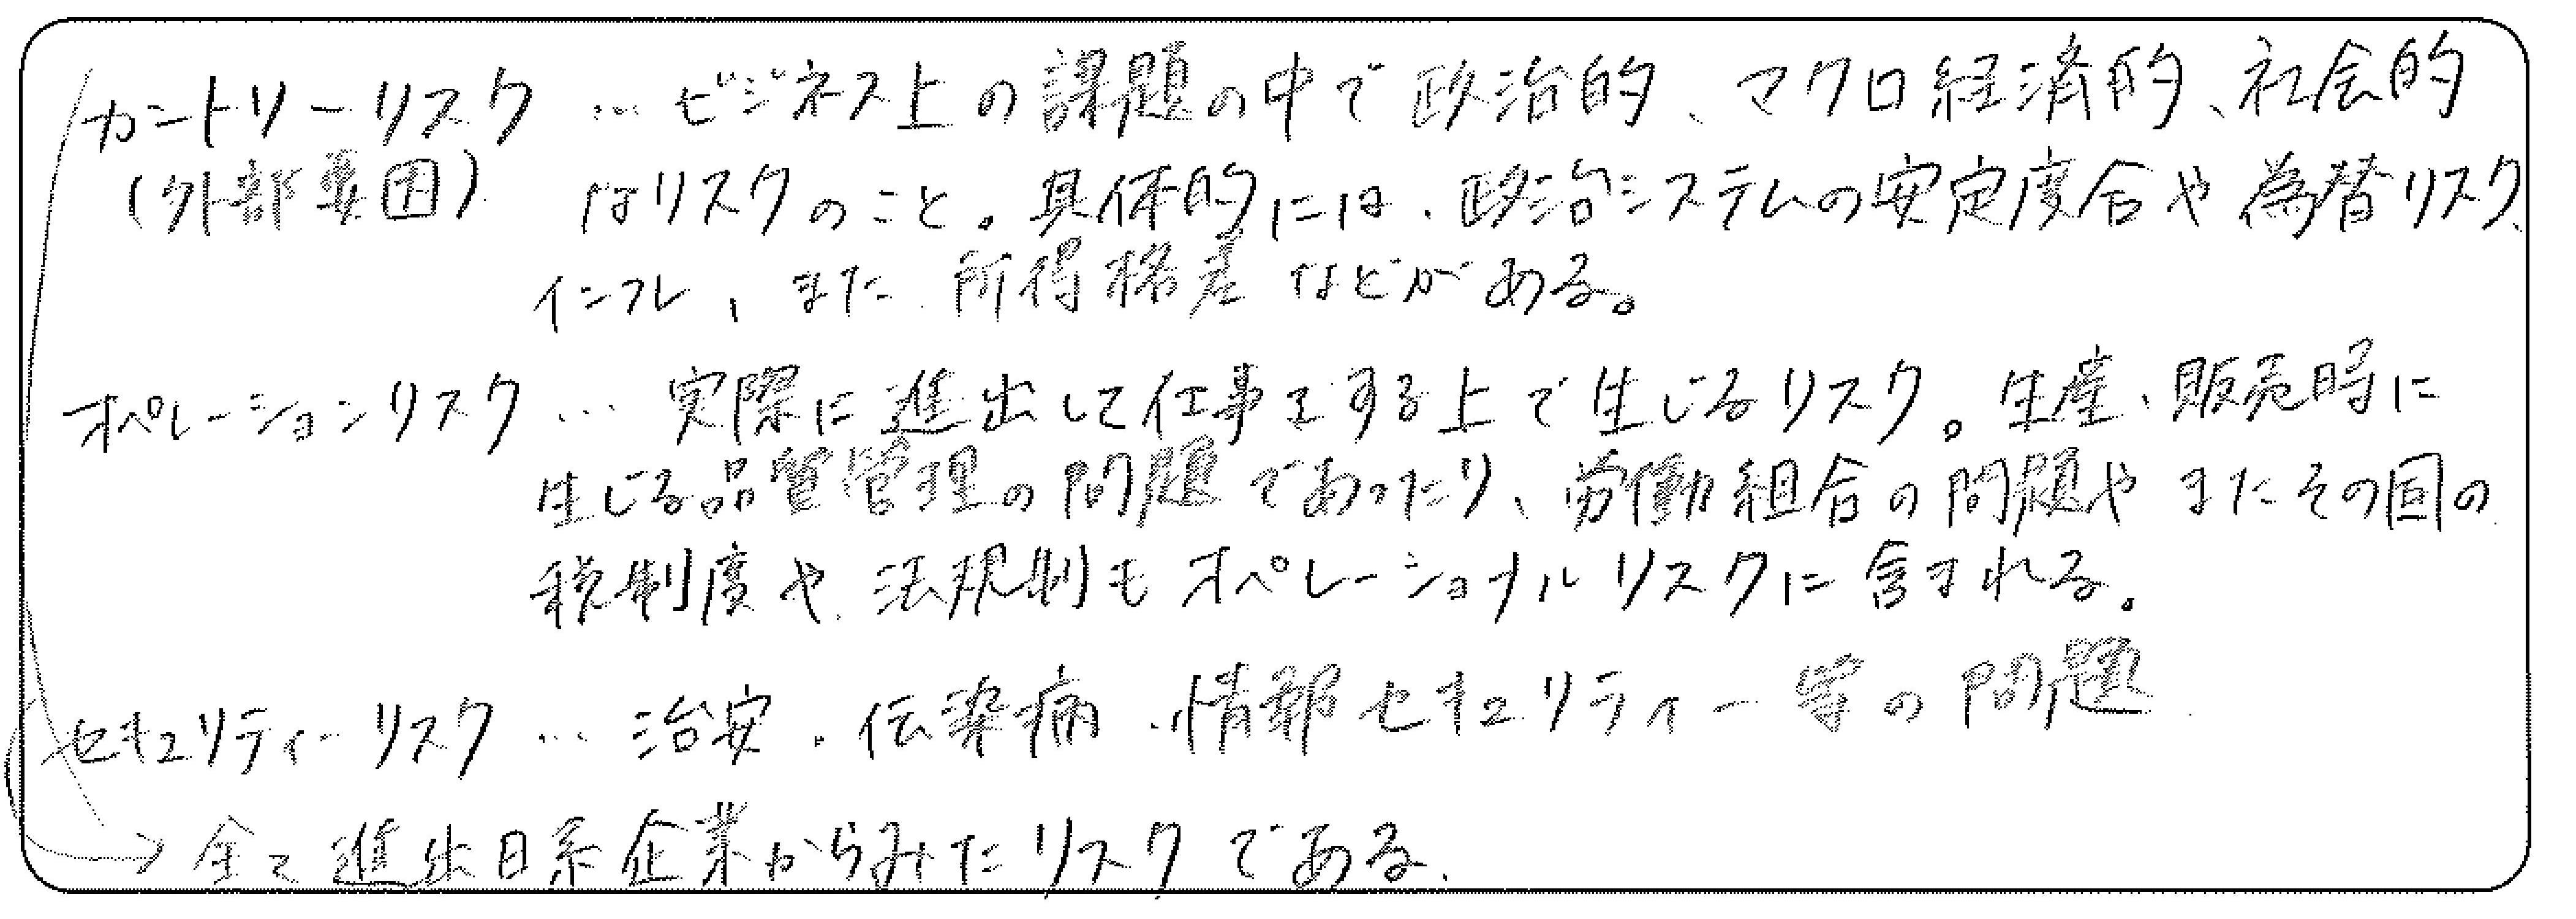 カントリーリスク … ビジネス上の課題の中で政治的、マクロ経済的、社会的
(外部要因) なリスクのこと。具体的には、政治システムの安定度合や為替リスク、
インフレ、また、所得格差などがある。
オペレーションリスク … 実際に進出して仕事をする上で生じるリスク。生産、販売時に
生じる品質管理の問題であったり、労働組合の問題や またその国の
税制度や、法規制もオペレーショナルリスクに含まれる。
セキュリティーリスク … 治安・伝染病・情報セキュリティー等の問題
→ 全て進出日系企業からみたリスクである.